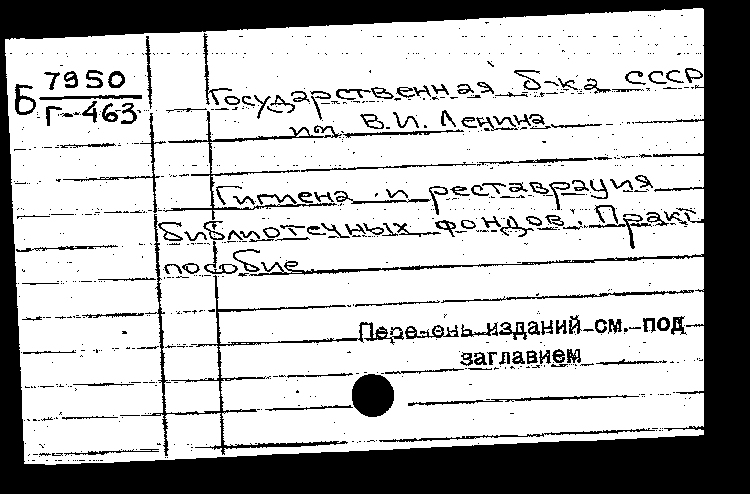 Б 7950
Г-463
Государственная б-ка СССР
им. В.И. Ленина
Гигиена и реставрация
библиотечных фондов. Практ.
пособие.
Перечень изданий см. под
заглавием